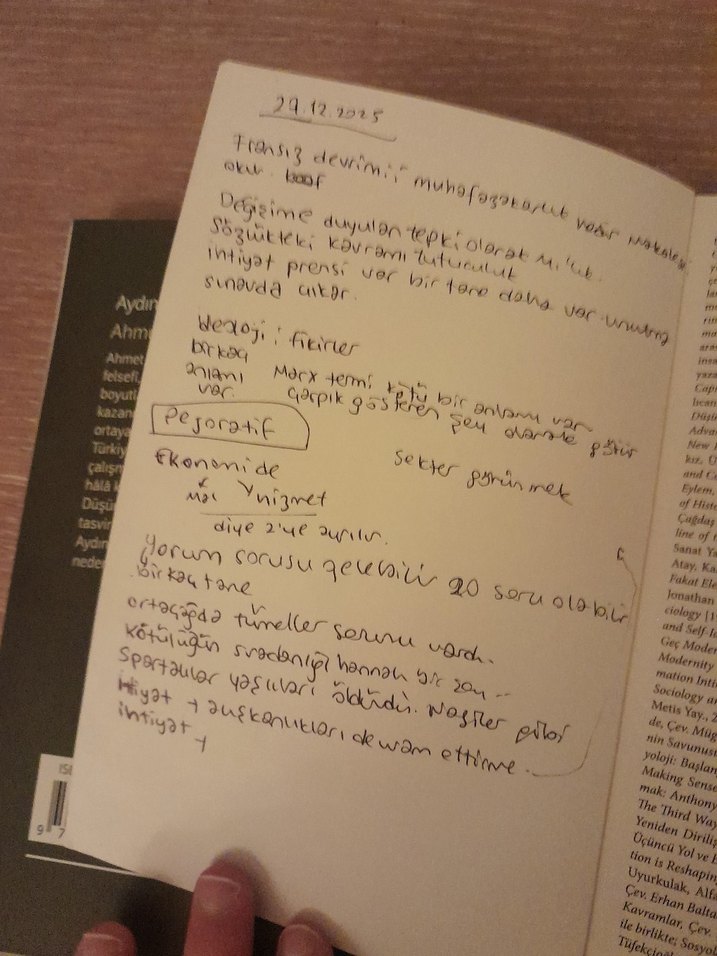 29.12.2025
Fransız devrimi: muhafazakarlık
oku.
Değişime duyulan tepki olarak
Sözlükteki kavramı tutuculuk
ihtiyat prensi var bir tane daha var unutma
sınavda çıkar.
ideoloji: fikirler
birkaç
anlamı
var.
Marx termi kötü bir anlamı var
çarpık gösteren şey olarak
Pejoratif
Sekter görünmek
Ekonomide
mal hizmet
diye 2'ye ayrılır.
Yorum sorusu gelebilir 20 soru olabilir
birkaç tane
ortaçağda tümeller sorunu vardı.
Kötülüğün sıradanlığı hannah
Spartalılar Naziler gibi
itiyat → alışkanlıkları devam ettirme
ihtiyat →
Aydın
Ahm
Ahmet
felsefi,
boyutl
kazan
ortaya
Türkiy
çalışm
hâlâ
Düşü
tasvir
Aydın
neden
ISB
9 7
Advan
New
and C
Eylem,
of Histo
Çağdaş
line of
Sanat Ya
Atay, Ka
Fakat Ele
Jonathan
ciology [1
and Self-I
Geç Moder
Modernity
mation Inti
Sociology a
Metis Yay., 2
de, Çev. Müg
nin Savunusu
yoloji: Başlan
Making Sense
mak: Anthony
The Third Way
Yeniden Diriliş
Üçüncü Yol ve E
tion is Reshapin
Uyurkulak, Alfa
Çev. Erhan Balta
Kavramlar, Çev.
ile birlikte; Sosyol
Tüfekçioğl